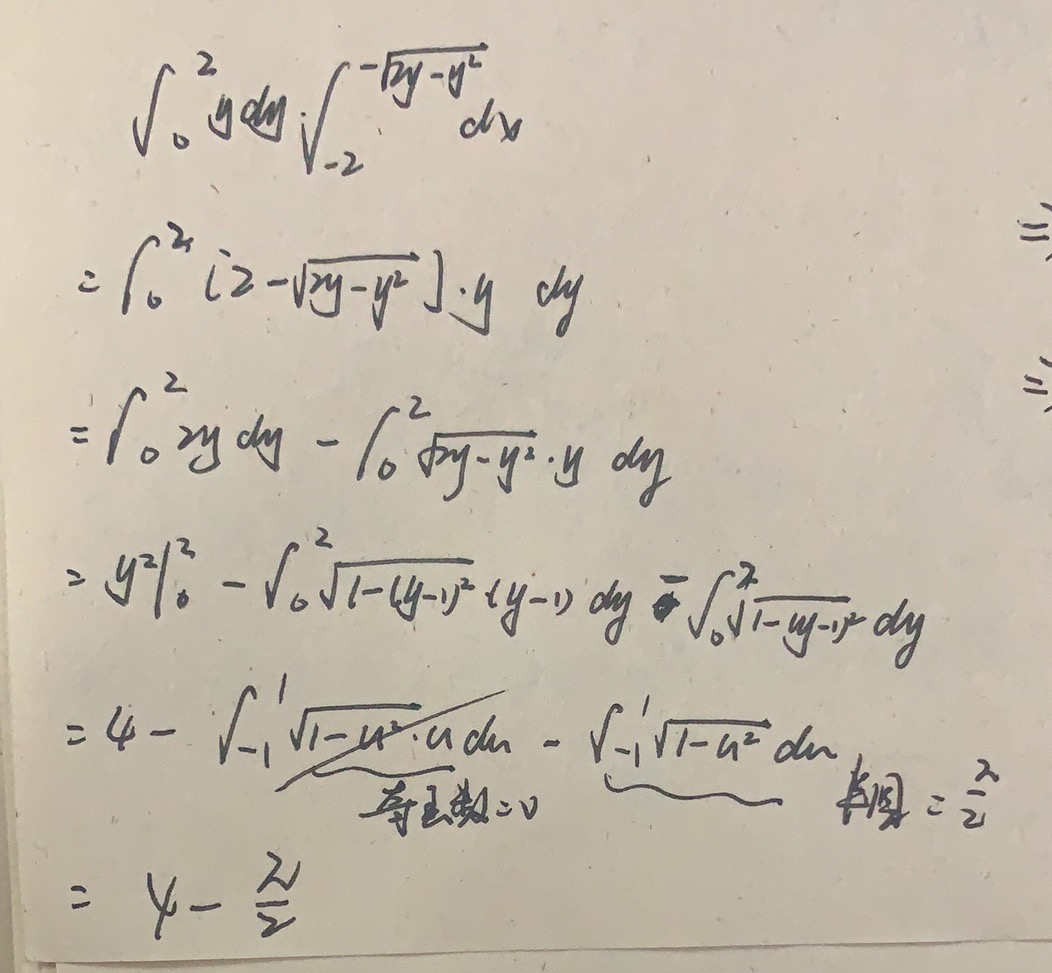 ∫₀² y dy · ∫₋₂^(-√(2y-y²)) dx
= ∫₀² [2-√(2y-y²)]·y dy
= ∫₀² 2y dy - ∫₀² √(2y-y²)·y dy
= y²|₀² - ∫₀² √(1-(y-1)²)·(y-1) dy - ∫₀² √(1-(y-1)²) dy
= 4 - ∫₋₁¹ √(1-u²)·u du - ∫₋₁¹ √(1-u²) du
奇函数=0 半圆 = π/2
= 4 - π/2